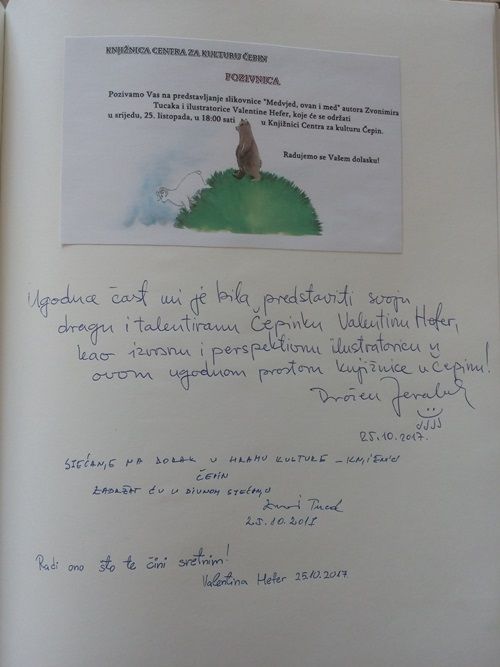 KNJIŽNICA CENTRA ZA KULTURU ČEPIN
POZIVNICA
Pozivamo Vas na predstavljanje slikovnice "Medvjed, ovan i med" autora Zvonimira
Tucaka i ilustratorice Valentine Hefer, koje će se održati
u srijedu, 25. listopada, u 18:00 sati u Knjižnici Centra za kulturu Čepin.
Radujemo se Vašem dolasku!
Ugodna čast mi je bila predstaviti svoju
dragu i talentiranu Čepinku Valentinu Hefer,
kao izvrsnu i perspektivnu ilustratoricu u
ovom ugodnom prostoru knjižnice u Čepinu!
25.10.2017.
SJEĆANJE NA BORAK U HRAMU KULTURE -
ČEPIN
ZADRŽAT ĆU U DIVNOM SJEĆANJU
25.10.2017
Radi ono što te čini sretnim!
Valentina Hefer 25.10.2017.